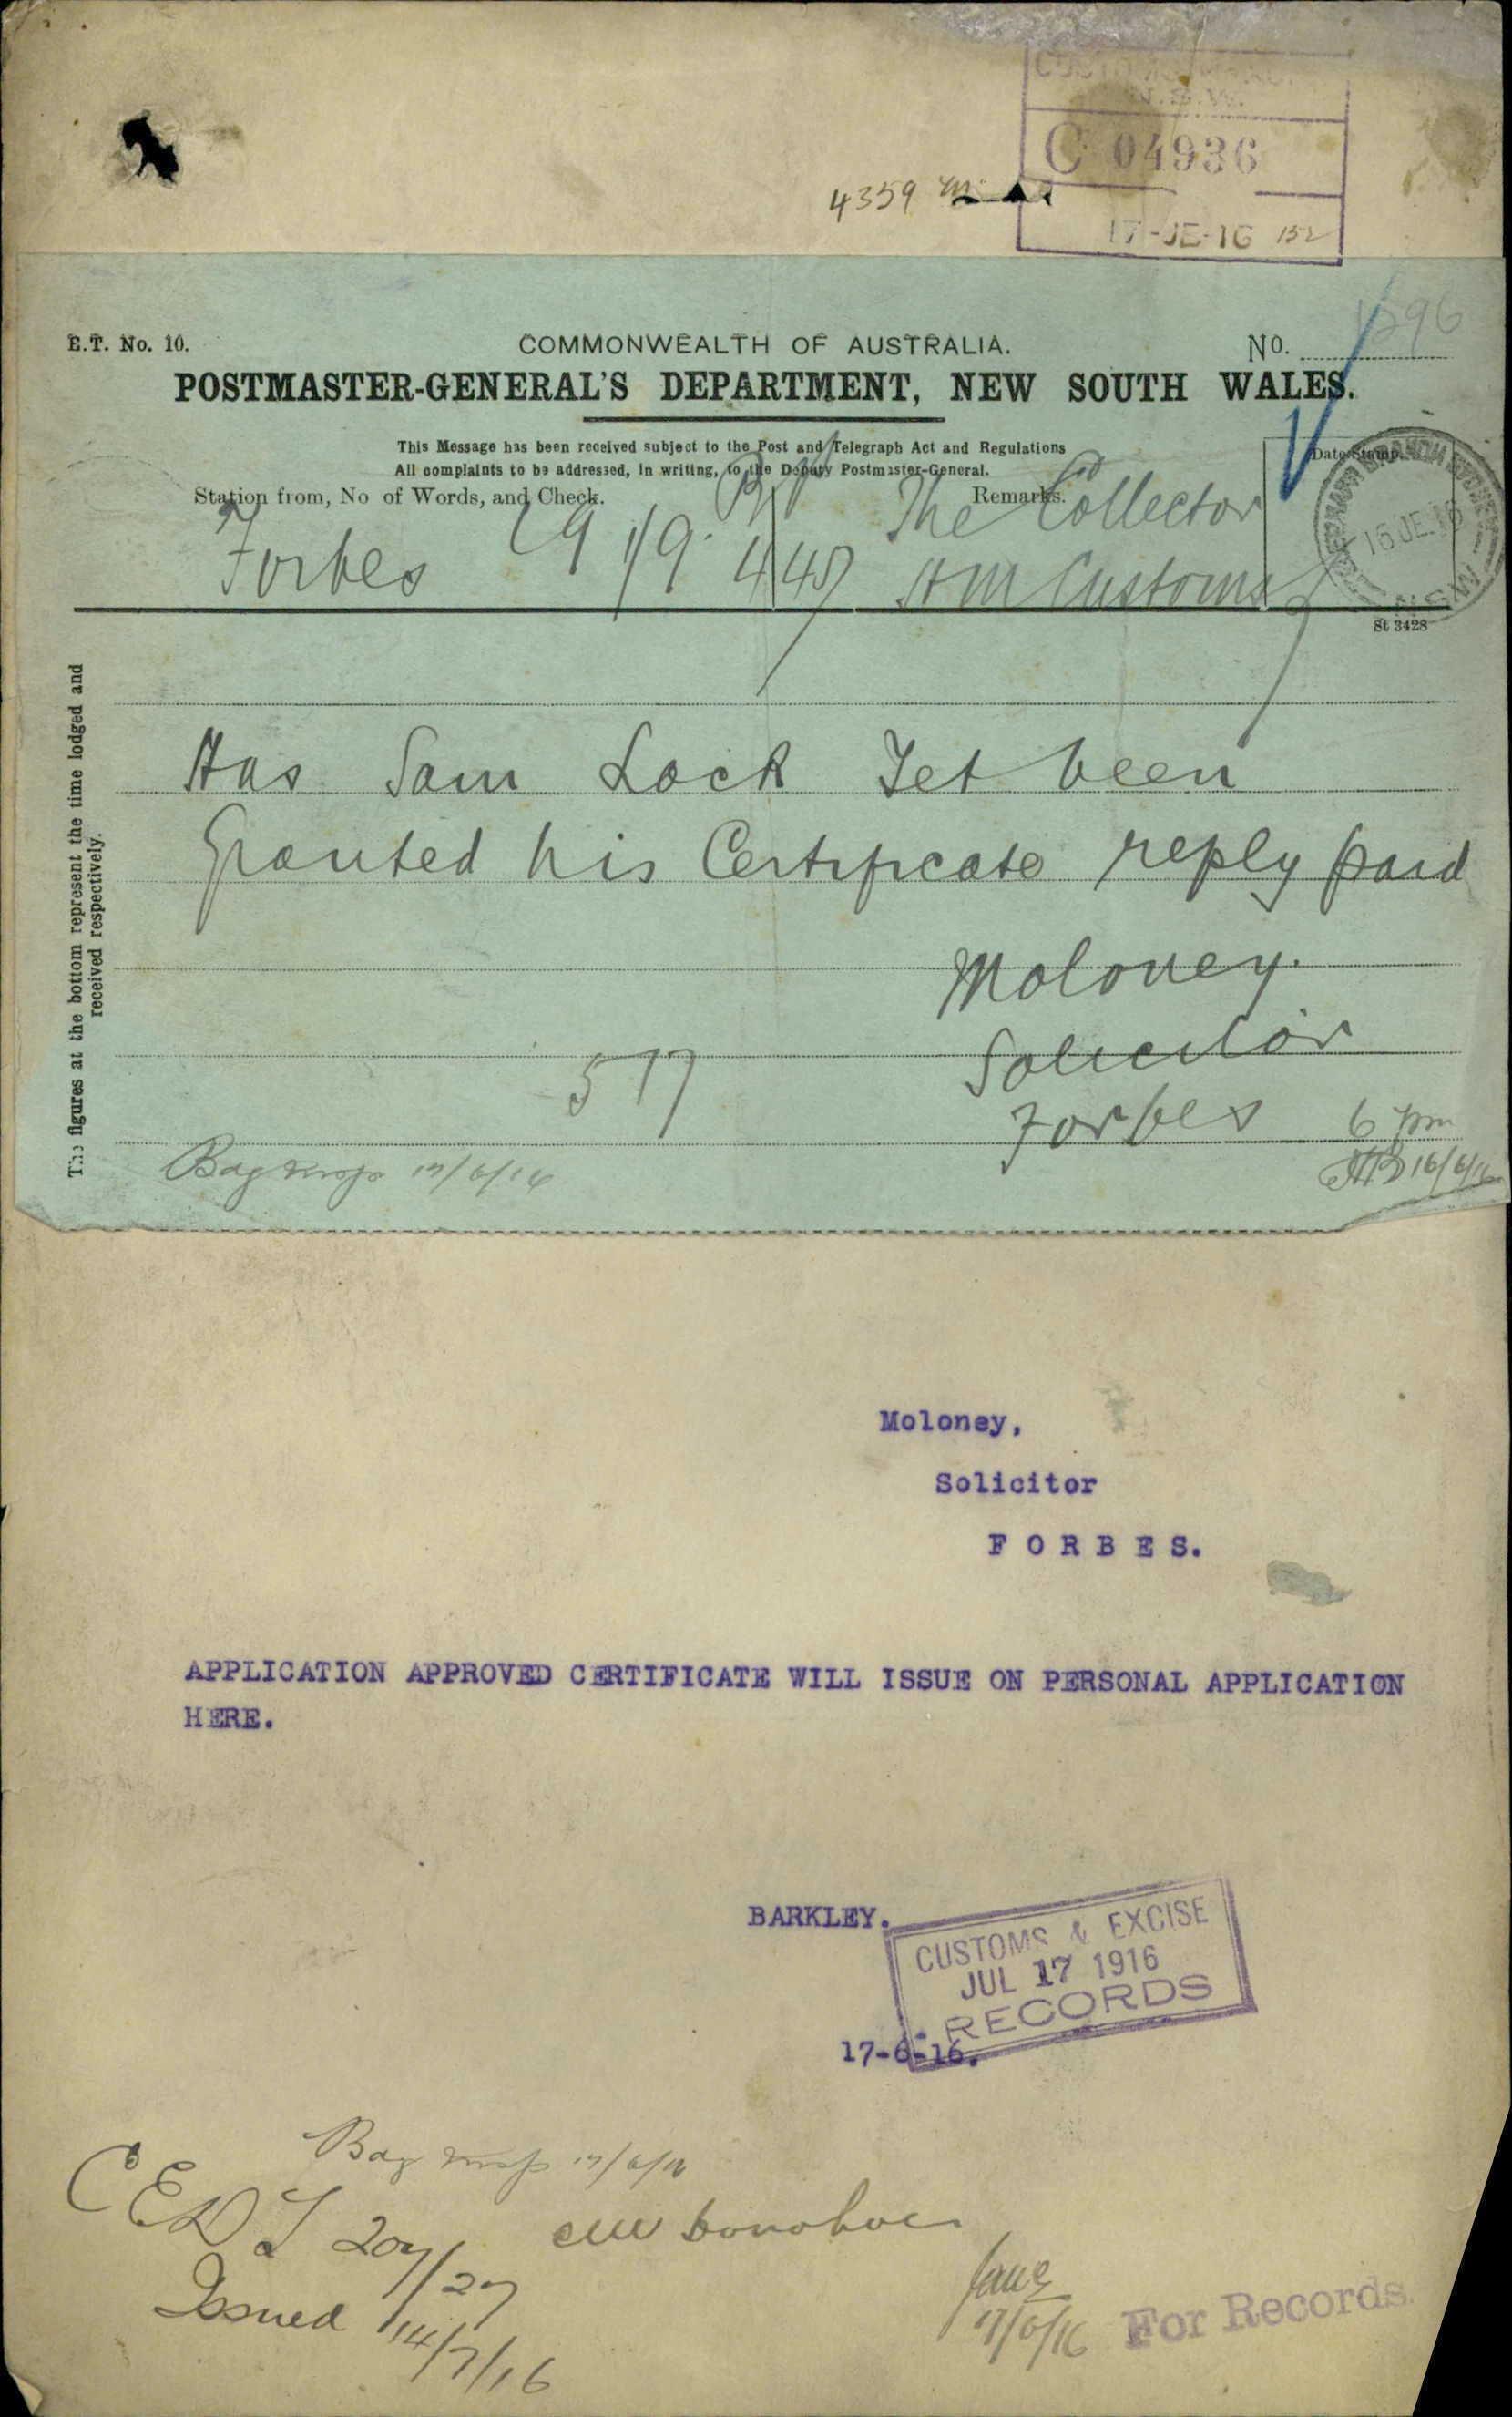 N.S.W.
C 04936
4359
17-JE-16 152
E.T. No. 10.
COMMONWEALTH OF AUSTRALIA.
No.
1296
POSTMASTER-GENERAL'S DEPARTMENT, NEW SOUTH WALES.
This Message has been received subject to the Post and Telegraph Act and Regulations
All complaints to be addressed, in writing, to the Deputy Postmaster-General.
Station from, No of Words, and Check.
Remarks.
Date Stamp.
16 JE 16
N.S.W
Forbes 29 1/9 445
The Collector
HM Customs
St 3428
The figures at the bottom represent the time lodged and
received respectively.
Has Sam Lock Yet been
Granted his Certificate reply paid
Moloney.
Solicitor
Forbes
517
6 pm
16/6/16
Bag 17/6/16
Moloney,
Solicitor
FORBES.
APPLICATION APPROVED CERTIFICATE WILL ISSUE ON PERSONAL APPLICATION
HERE.
BARKLEY.
CUSTOMS & EXCISE
JUL 17 1916
RECORDS
17-6-16.
Bag 17/6/16
CEDT 207/27
Issued 14/7/16
Donohoe
17/6/16
For Records.